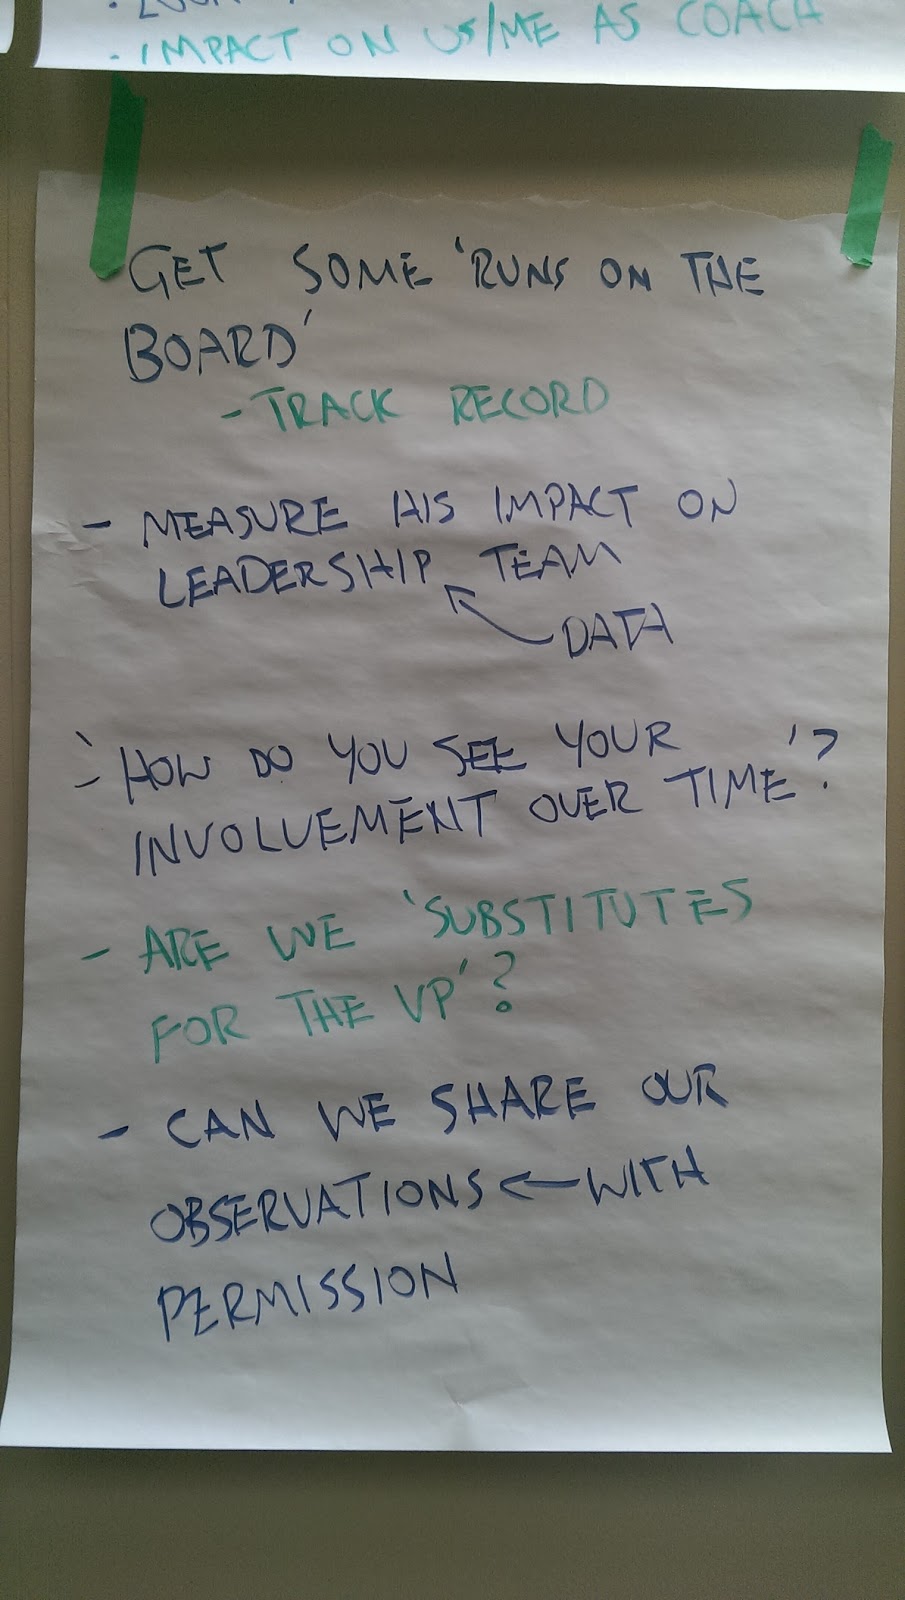 · IMPACT ON US/ME AS COACH
GET SOME 'RUNS ON THE
BOARD'
- TRACK RECORD
- MEASURE HIS IMPACT ON
LEADERSHIP TEAM
← DATA
- 'HOW DO YOU SEE YOUR
INVOLVEMENT OVER TIME'?
- ARE WE 'SUBSTITUTES
FOR THE VP'?
- CAN WE SHARE OUR
OBSERVATIONS ← WITH
PERMISSION